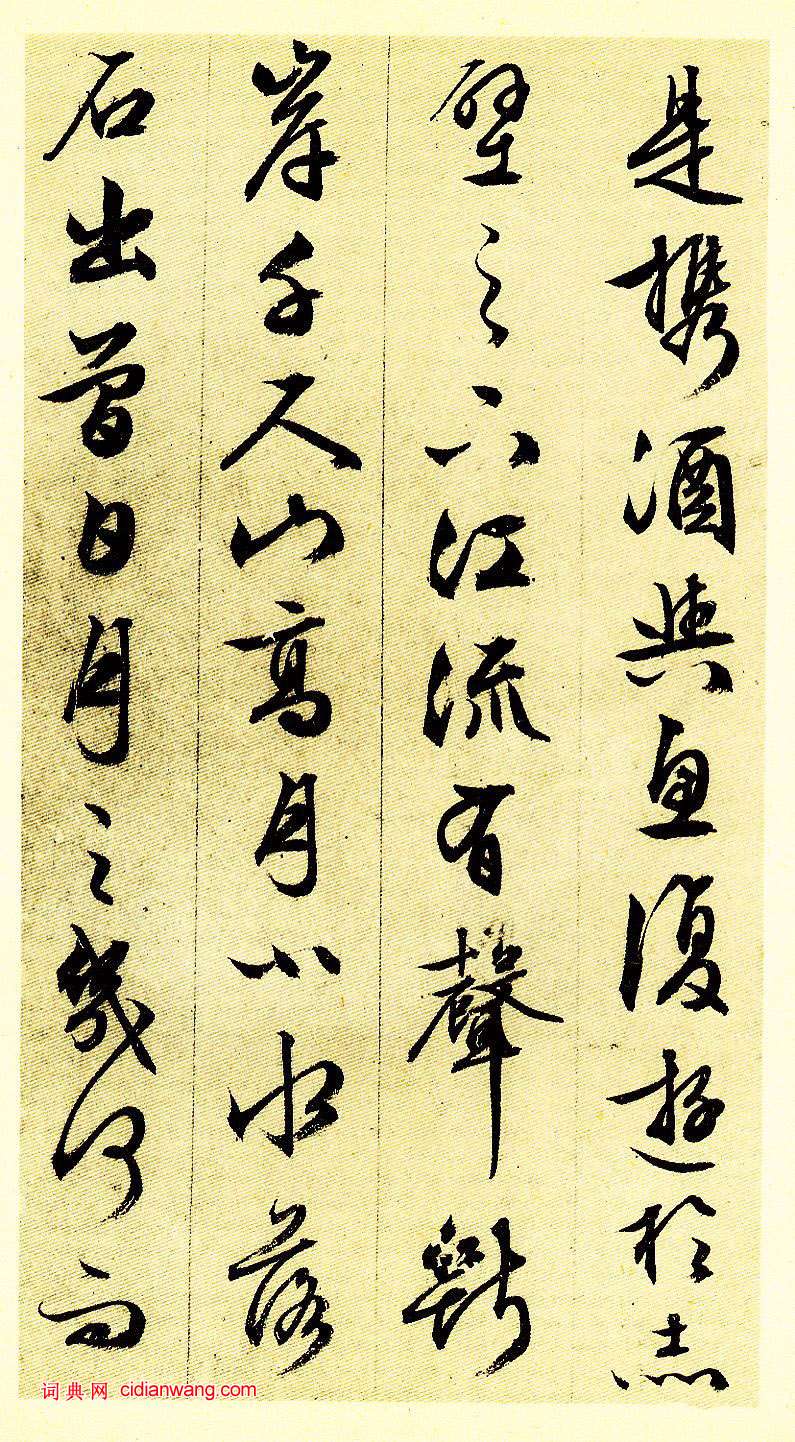 是攜酒與魚復遊於赤
壁之下江流有聲斷
岸千尺山高月小水落
石出曾日月之幾何而
词典网 cidianwang.com